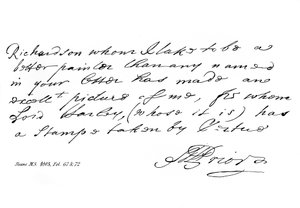 Richardson whom I take to be a
better painter than any named
in your letter has made an
excellt picture of me, from whom
Lord Harley, (whose it is) has
a Stamp taken by Virtue
MPrior
Sloane MS. 4049, Fol. 67 & 72